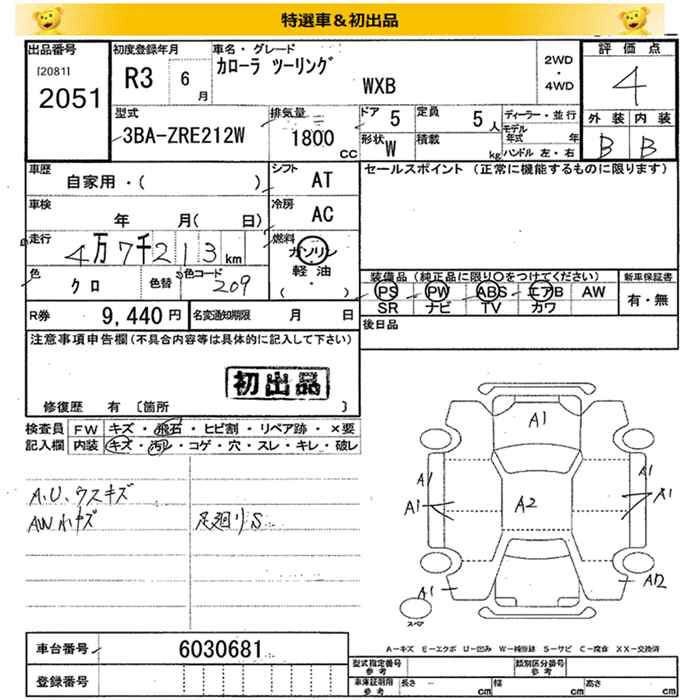 特選車&初出品
出品番号 初度登録年月 車名・グレード 評価点
[2081] 2051 R3 6月 カローラ ツーリング WXB 2WD・4WD 4
型式 排気量 ドア 5 定員 5人 ディーラー・並行 外装 内装
3BA-ZRE212W 1800cc 形状 W 積載 kg モデル年式 年 ハンドル 左・右 B B
車歴 自家用・( ) シフト AT セールスポイント (正常に機能するものに限ります)
車検 年 月( 日) 冷房 AC
走行 4万7千213km 燃料 ガソリン 軽油 ( ・ )
色 クロ 色替 色コード 209
装備品 (純正品に限り○をつけてください) 新車保証書
PS PW ABS エアB AW 有・無
SR ナビ TV カワ
R券 9,440円 名変通知期限 月 日 後日品
注意事項申告欄(不具合内容等は具体的に記入して下さい)
初出品
修復歴 有 〔箇所 〕
検査員 FW キズ・飛石・ヒビ割・リペア跡・×要
記入欄 内装 キズ・汚レ・コゲ・穴・スレ・キレ・破レ
A.U.ウスキズ
AW小キズ 足廻りS
A1
A1 A2 A1
A1
A1
スペア
A-キズ E-エクボ U-凹み W-補修跡 S-サビ C-腐食 XX-交換済
車台番号 6030681
登録番号
型式指定番号 参考 類別区分番号 参考
車庫証明用 参考 長さ cm 幅 cm 高さ cm